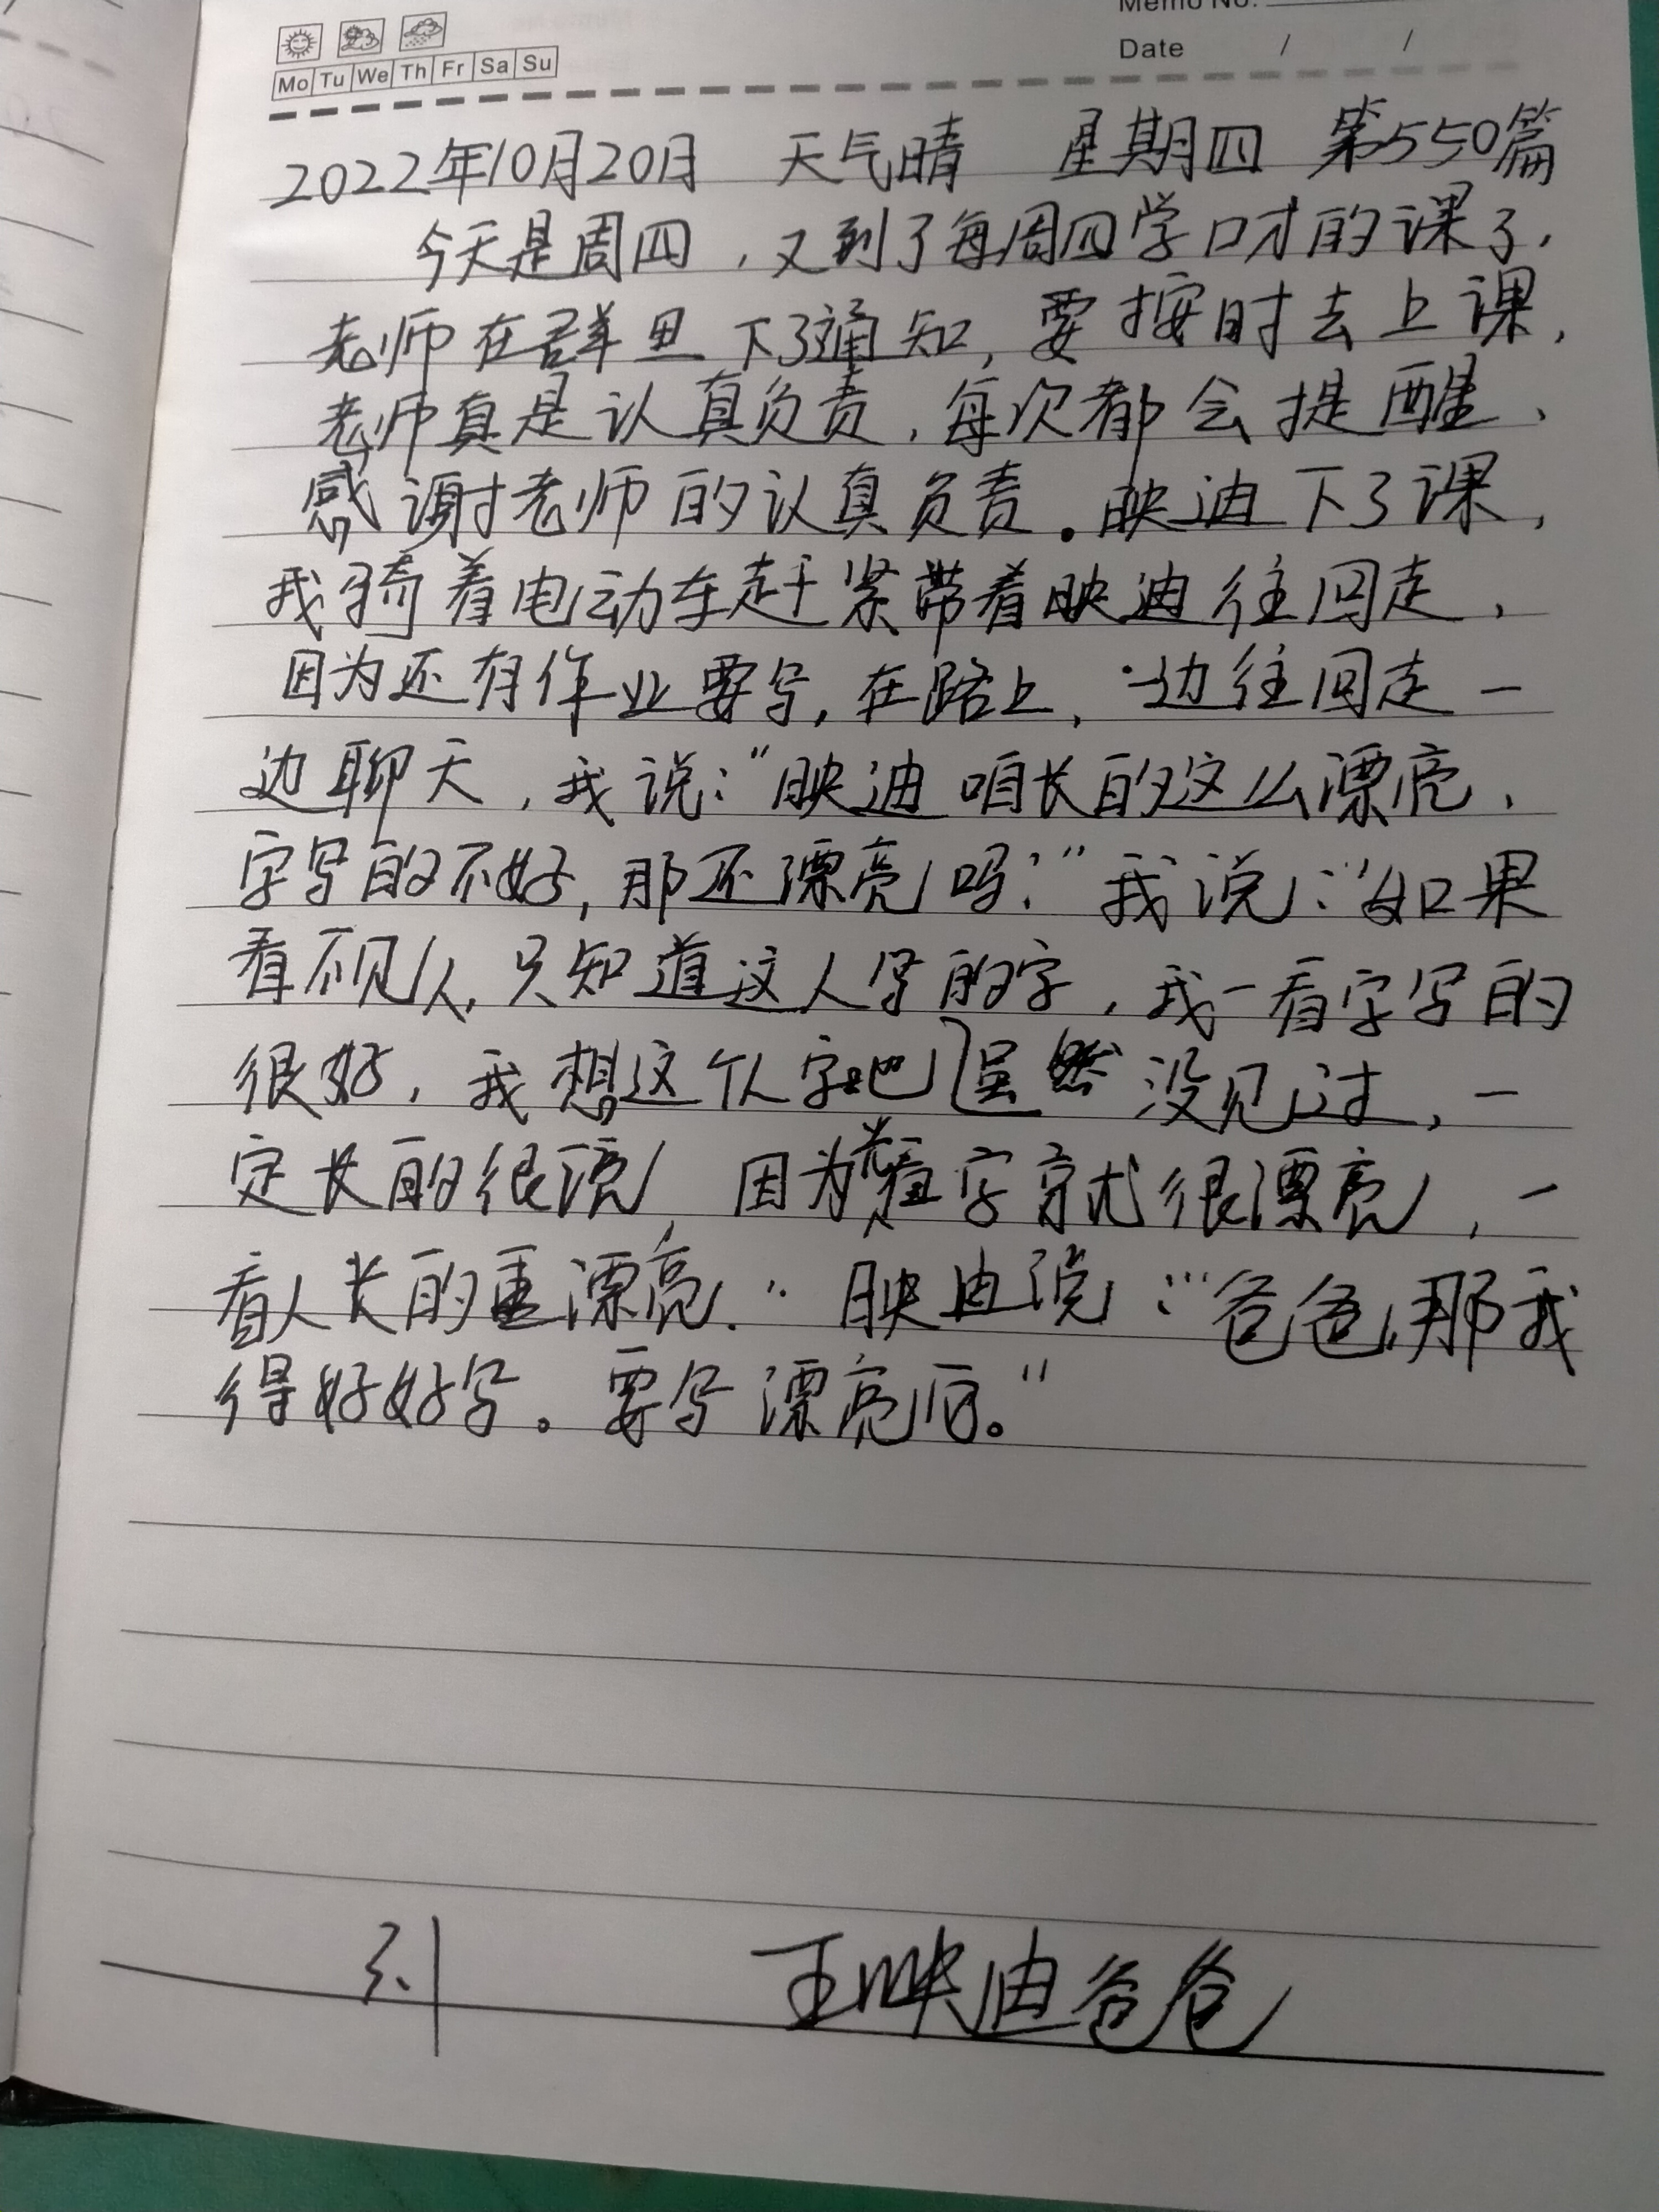 Memo No.
Date / /
Mo Tu We Th Fr Sa Su
2022年10月20日 天气晴 星期四 第550篇
今天是周四，又到了每周四学口才的课了，
老师在群里下了通知，要按时去上课，
老师真是认真负责，每次都会提醒、
感谢老师的认真负责。映迪下了课，
我骑着电动车赶紧带着映迪往回走，
因为还有作业要写，在路上，一边往回走一
边聊天，我说：“映迪咱长的这么漂亮，
字写的不好，那还漂亮吗？”我说：“如果
看不见人，只知道这人写的字，我一看字写的
很好，我想这个人字吧虽然没见过，一
定长的很漂亮，因为看字就很漂亮，一
看人长的更漂亮.”映迪说：“爸爸，那我
得好好写。要写漂亮后。”
王映迪爸爸